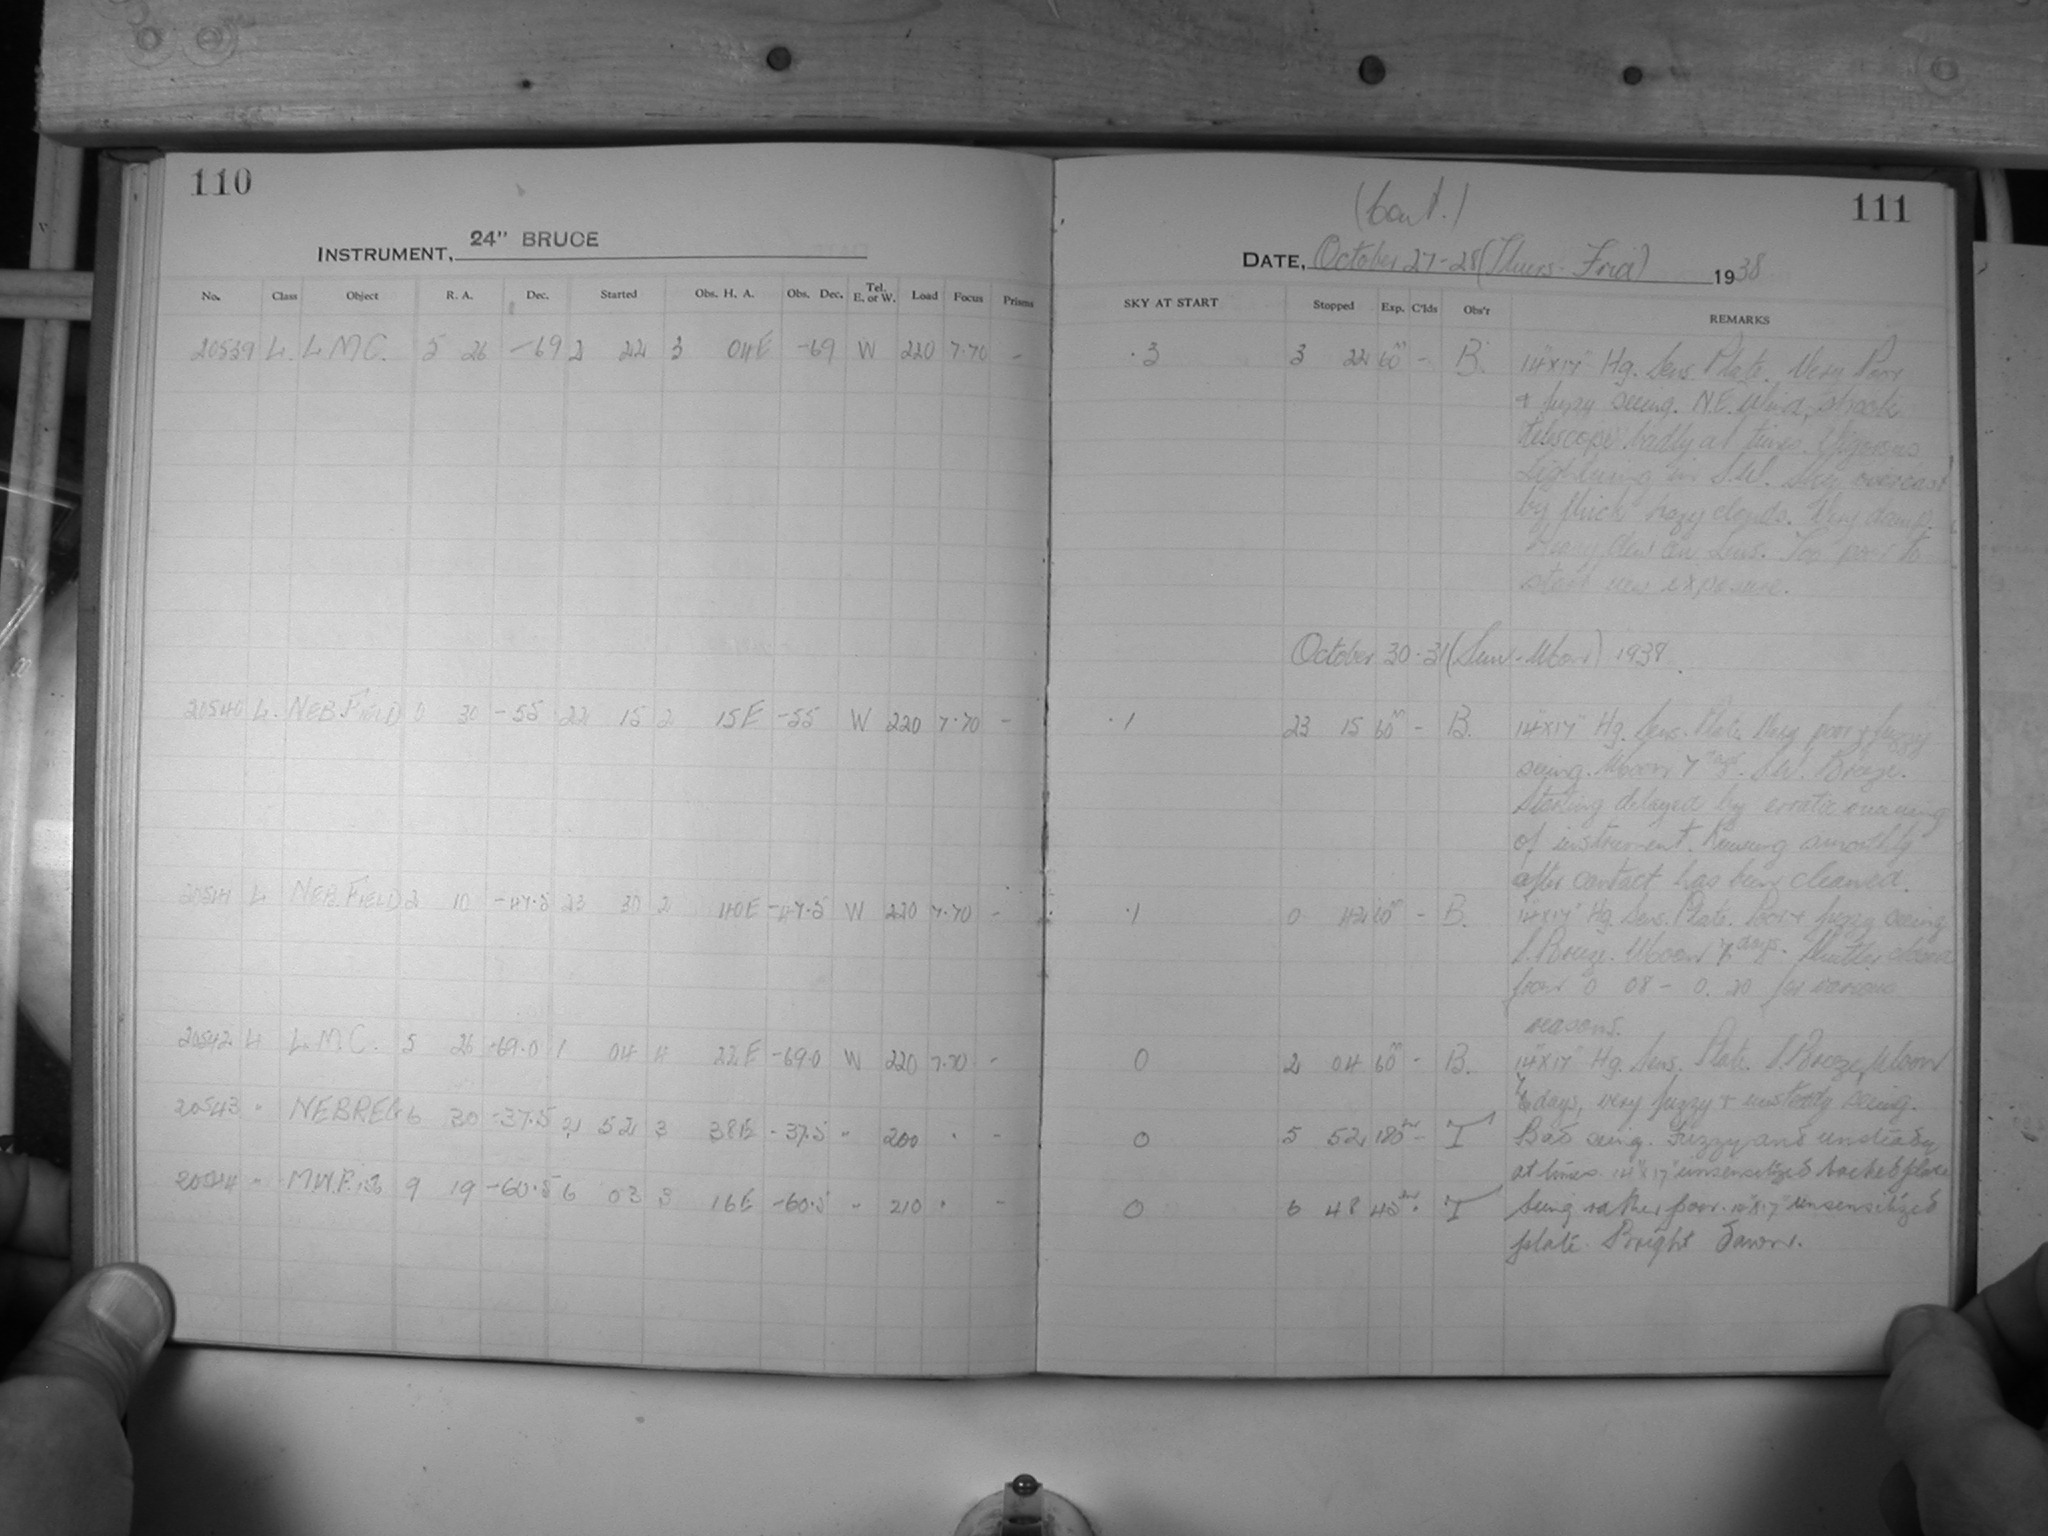 110
INSTRUMENT, 24" BRUCE
No. Class Object R. A. Dec. Started Obs. H. A. Obs. Dec. Tel. E. or W. Load Focus Prisms
20539 L. L M C. 5 26 -69 2 22 3 04E -69 W 220 7.70 -
20540 L. NEB. FIELD 0 30 -55 22 15 2 15E -55 W 220 7.70 -
20541 L NEB. FIELD 2 10 -47.5 23 30 2 40E -47.5 W 220 7.70 -
20542 L L.M.C. 5 26 -69.0 1 04 4 22E -69.0 W 220 7.70 -
20543 " NEBREG 6 30 -37.5 2 52 3 38E -37.5 " 200 " -
20544 " M.W.F. 9 19 -60.5 6 03 3 16E -60.5 " 210 " -
(Cont.)
111
DATE, October 27-28 (Thurs-Frid) 1938
SKY AT START Stopped Exp. C'lds Obs'r REMARKS
.3 3 22 60m - B. 14"x17" Hg. Sens Plate. Very Poor
& fuzzy seeing. N.E. Wind, shook
telescope badly at times. Vigorous
Lightning in S.W. Sky overcast
by thick hazy clouds. Very damp.
Heavy dew on Lens. Too poor to
start new exposure.
October 30-31 (Sun-Mon) 1938.
.1 23 15 60m - B. 14"x17" Hg. Sens. Plate. Very poor & fuzzy
seeing. Moon 7 days. S.W. Breeze.
Starting delayed by erratic running
of instrument. Running smoothly
after contact has been cleaned.
.1 0 42 60m - B. 14"x17" Hg. Sens. Plate. Poor & fuzzy seeing
S. Breeze. Moon 7 days. Shutter closed
from 0 08 - 0. 20 for various
reasons.
0 2 04 60m - B. 14"x17" Hg. Sens. Plate. S. Breeze, Moon
7 days, very fuzzy & unsteady seeing.
0 5 52 180m - T Bad seeing. Fuzzy and unsteady
at times. 14"x17" unsensitized backed plate
0 6 48 45m - T Seeing rather poor. 14"x17" unsensitized
plate. Bright dawn.